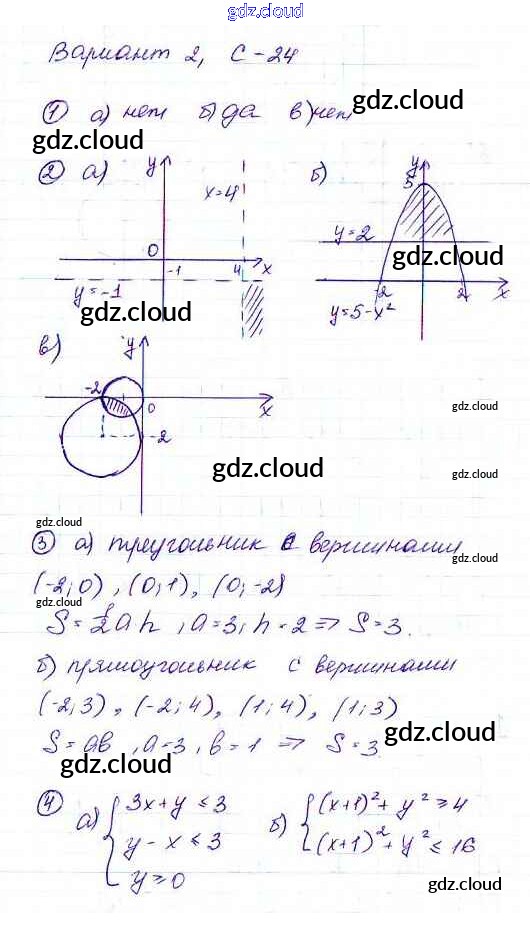 gdz.cloud
Вариант 2, С-24
① а) нет б) да в) нет gdz.cloud
gdz.cloud
② а) y x=4 0 -1 4 x y=-1
gdz.cloud
б) y 5 y=2 gdz.cloud -2 2 x y=5-x²
в) y -2 0 x -2
gdz.cloud
gdz.cloud
gdz.cloud
gdz.cloud
③ а) треугольник с вершинами
gdz.cloud
(-2;0), (0;1), (0;-2)
gdz.cloud
S=1/2 a h, a=3, h=2 ⇒ S=3.
б) прямоугольник с вершинами
(-2;3), (-2;4), (1;4), (1;3)
gdz.cloud
S=ab, a=3, b=1 ⇒ S=3
gdz.cloud
④ а) { 3x+y ≤ 3
y-x ≤ 3
y ≥ 0
б) { (x+1)²+y² ≥ 4
(x+1)²+y² ≤ 16
gdz.cloud